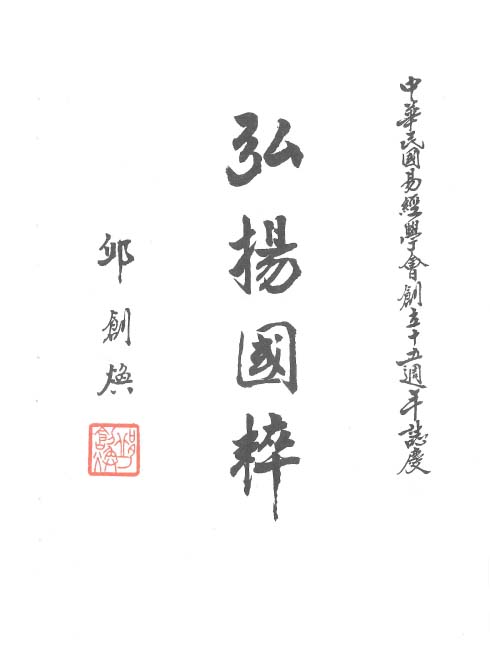 中華民國易經學會創立十五週年誌慶
弘揚國粹
邱創煥
邱創煥